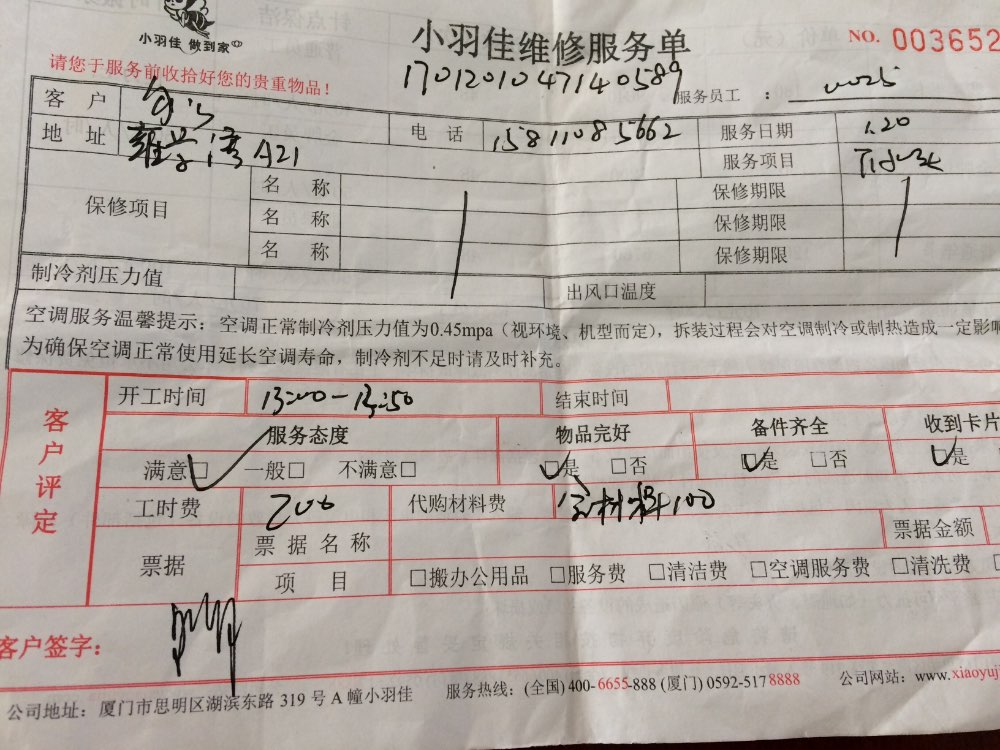 小羽佳 做到家
小羽佳维修服务单
NO. 003652
请您于服务前收拾好您的贵重物品！
17012010471140589
服务员工 ： 0025
客 户
电 话 15811085662 服务日期 1.20
地 址 A21
服务项目
保修项目 名 称 保修期限
名 称 保修期限
名 称 保修期限
制冷剂压力值 出风口温度
空调服务温馨提示：空调正常制冷剂压力值为0.45mpa（视环境、机型而定），拆装过程会对空调制冷或制热造成一定影响
为确保空调正常使用延长空调寿命，制冷剂不足时请及时补充。
客户评定
开工时间 13:00-13:50 结束时间
服务态度 物品完好 备件齐全 收到卡片
满意□ 一般□ 不满意□ □是 □否 □是 □否 □是
工时费 200 代购材料费 含材料100
票据 票 据 名 称 票据金额
项 目 □搬办公用品 □服务费 □清洁费 □空调服务费 □清洗费
客户签字：
公司地址：厦门市思明区湖滨东路 319 号 A 幢小羽佳 服务热线：(全国) 400-6655-888 (厦门) 0592-5178888 公司网站：www.xiaoyuj